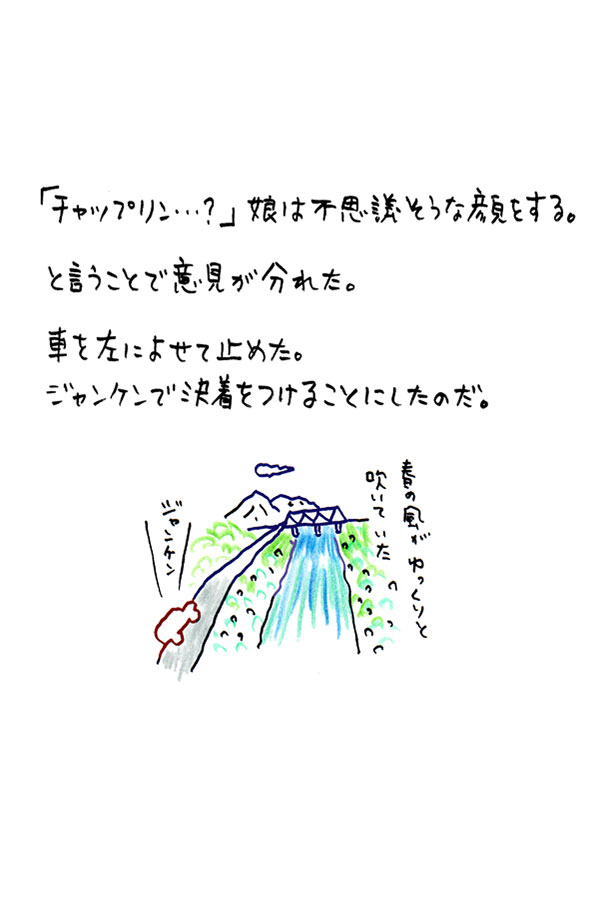 「チャップリン…?」娘は不思議そうな顔をする。
と言うことで意見が分れた。
車を左によせて止めた。
ジャンケンで決着をつけることにしたのだ。
春の風がゆっくりと
吹いていた
ジャンケン